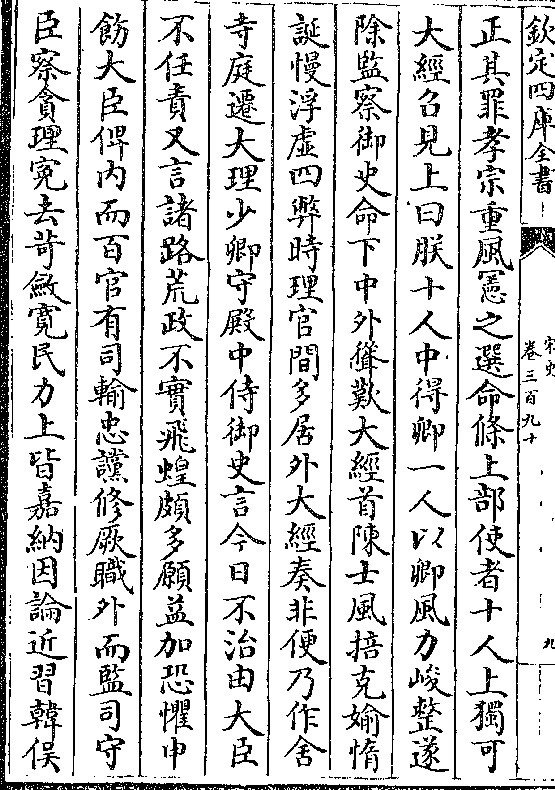 欽定四庫全書
宋史
卷三百九十
九
正其罪孝宗重風憲之選命條上部使者十人上獨可
大經召見上曰朕十人中得卿一人以卿風力峻整遂
除監察御史命下中外聳歎大經首陳士風掊克媮惰
誕慢浮虛四弊時理官間多居外大經奏非便乃作舍
寺庭遷大理少卿守殿中侍御史言今日不治由大臣
不任責又言諸路荒政不實飛蝗頗多願益加恐懼申
飭大臣俾内而百官有司輸忠讜修厥職外而監司守
臣察貪理寃去苛斂寛民力上皆嘉納因論近習韓俣